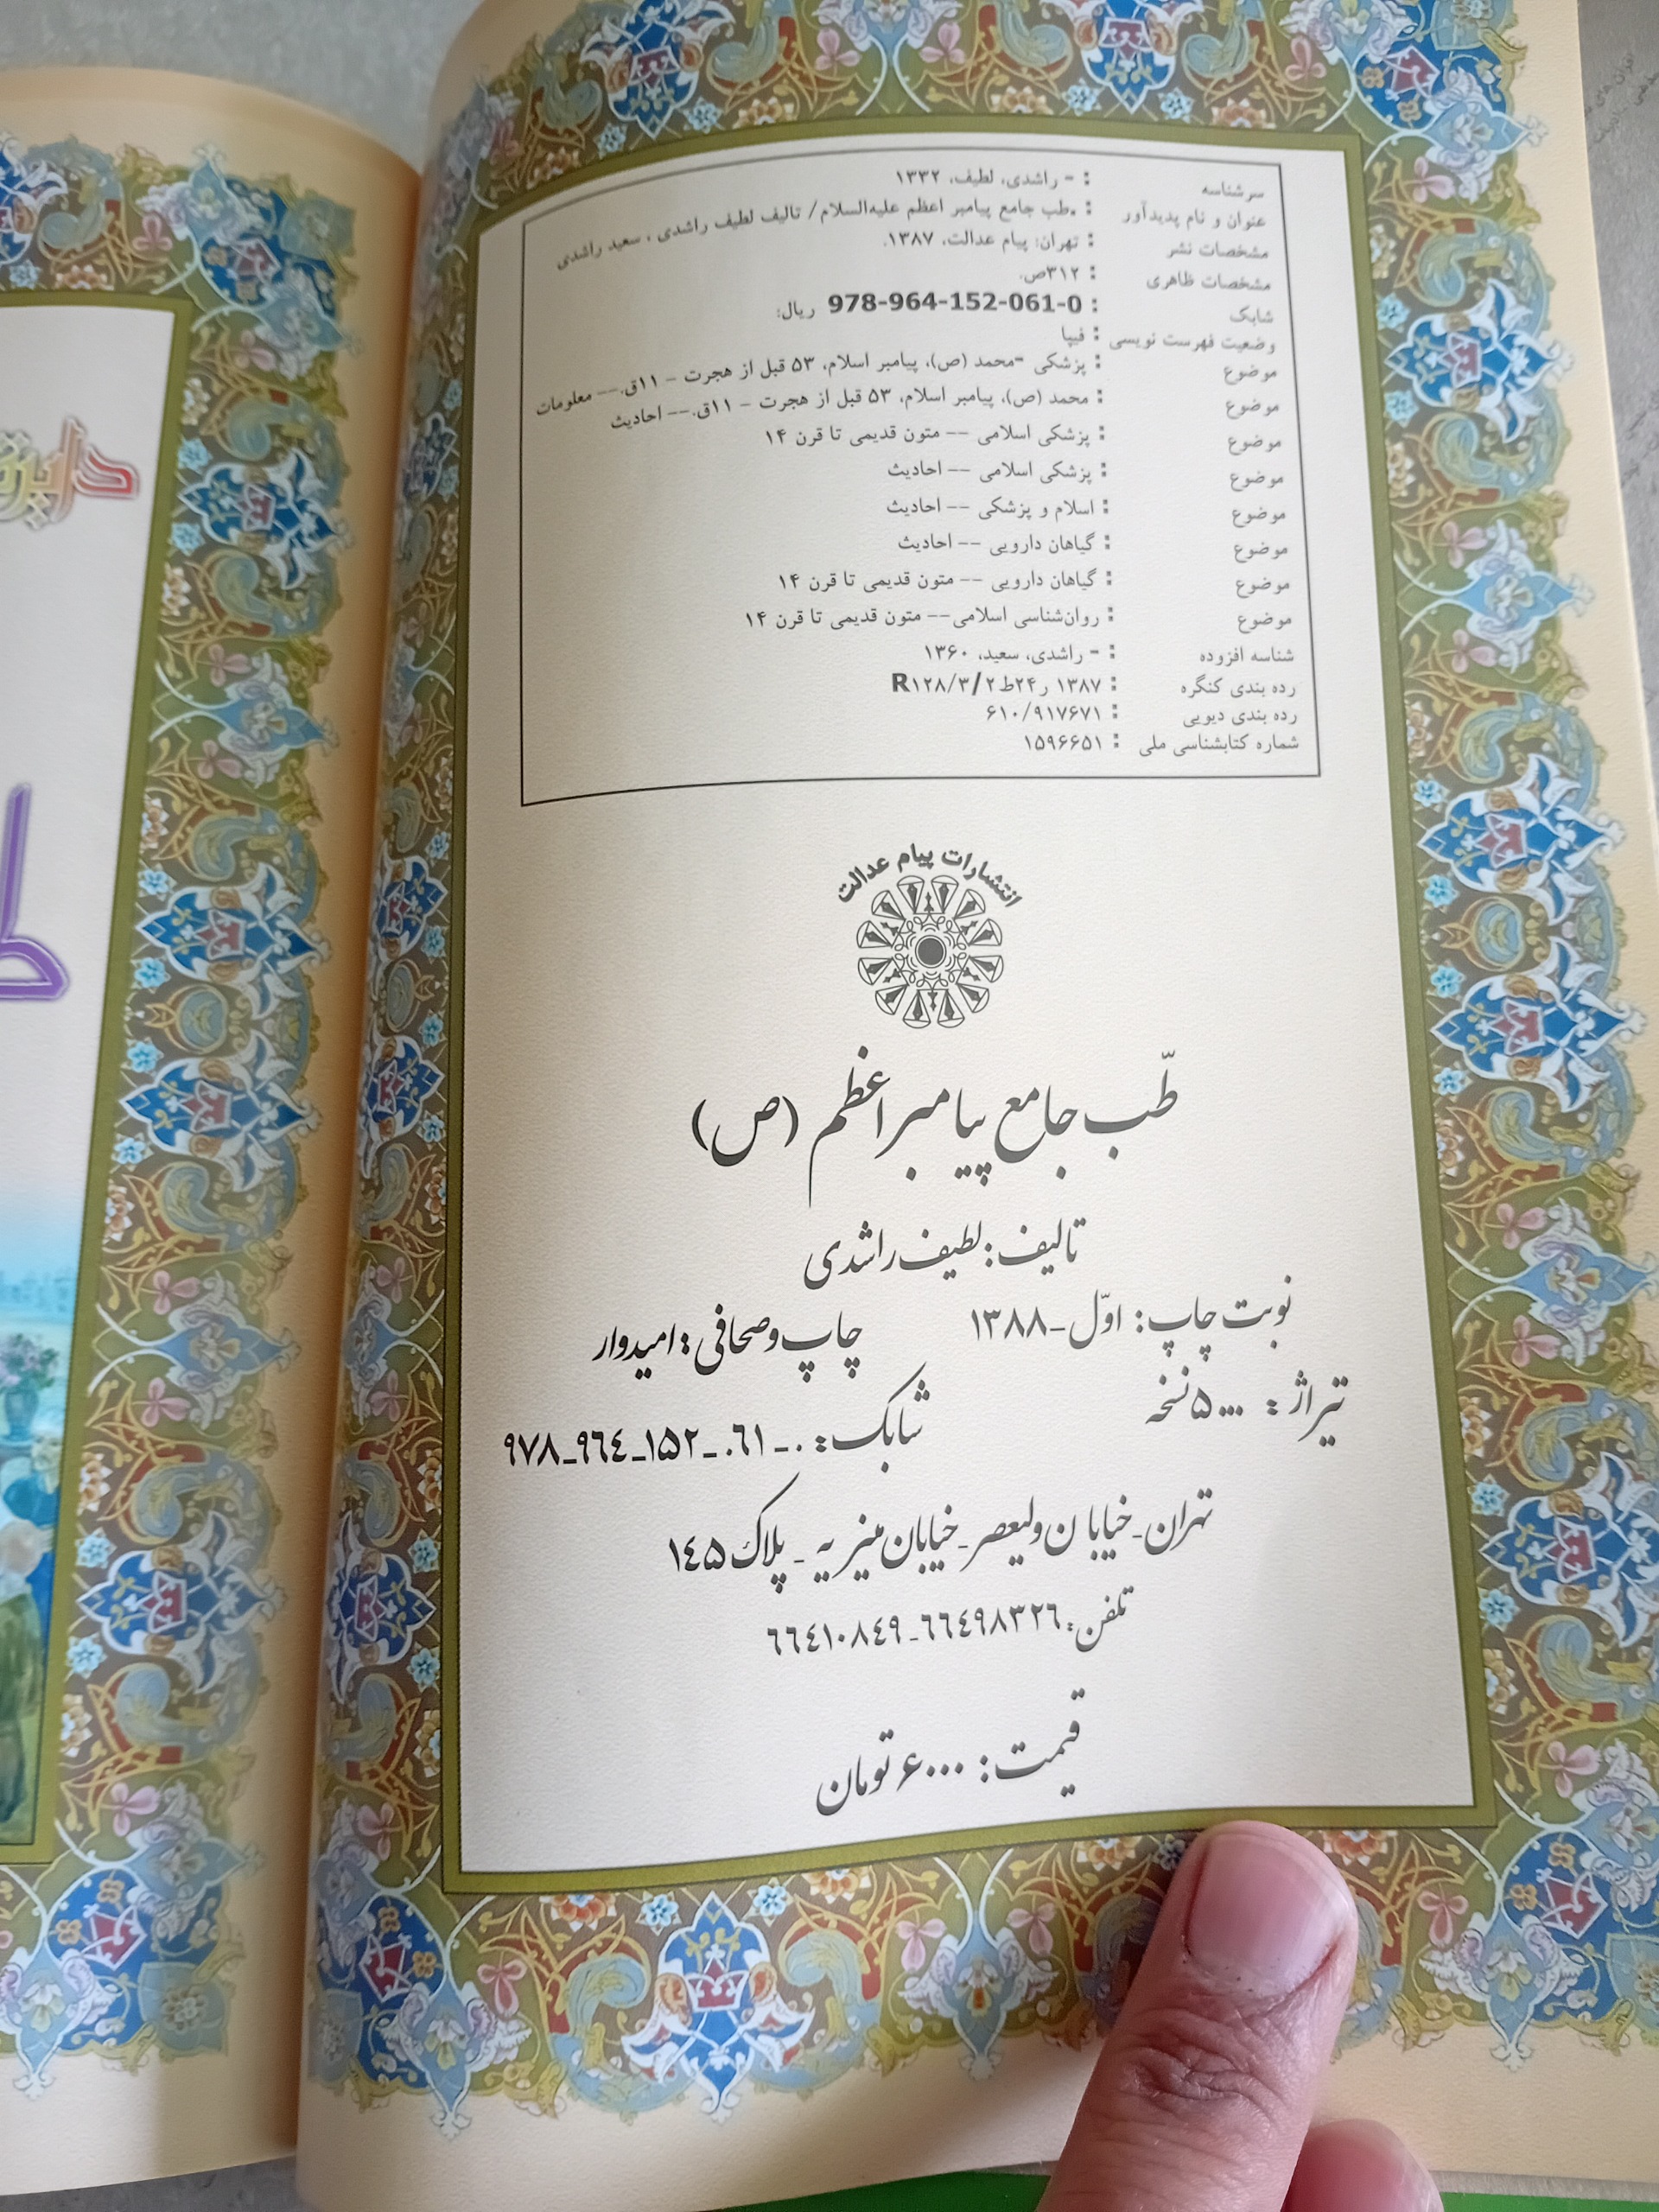 سرشناسه : - راشدی، لطیف، ۱۳۳۲
عنوان و نام پدیدآور : .طب جامع پیامبر اعظم علیه‌السلام/ تالیف لطیف راشدی ، سعید راشدی
مشخصات نشر : تهران: پیام عدالت، ۱۳۸۷.
مشخصات ظاهری : ۳۱۲ص.
شابک : 978-964-152-061-0 ریال:
وضعیت فهرست نویسی : فیپا
موضوع : پزشکی -محمد (ص)، پیامبر اسلام، ۵۳ قبل از هجرت - ۱۱ق.-- معلومات
موضوع : محمد (ص)، پیامبر اسلام، ۵۳ قبل از هجرت - ۱۱ق.-- احادیث
موضوع : پزشکی اسلامی -- متون قدیمی تا قرن ۱۴
موضوع : پزشکی اسلامی -- احادیث
موضوع : اسلام و پزشکی -- احادیث
موضوع : گیاهان دارویی -- احادیث
موضوع : گیاهان دارویی -- متون قدیمی تا قرن ۱۴
موضوع : روان‌شناسی اسلامی-- متون قدیمی تا قرن ۱۴
شناسه افزوده : - راشدی، سعید، ۱۳۶۰
رده بندی کنگره : ۱۳۸۷ ر۲۴ط۲/R۱۲۸/۳
رده بندی دیویی : ۶۱۰/۹۱۷۶۷۱
شماره کتابشناسی ملی : ۱۵۹۶۶۵۱
انتشارات پیام عدالت
طبّ جامع پیامبر اعظم (ص)
تالیف: لطیف راشدی
نوبت چاپ: اوّل-۱۳۸۸ چاپ و صحافی: امیدوار
تیراژ: ۵۰۰۰نسخه شابک: ۰-۰۶۱-۱۵۲-۹۶۴-۹۷۸
تهران-خیابان ولیعصر-خیابان منیریه - پلاک ۱۴۵
تلفن: ۶۶۴۹۸۳۲۶-۶۶۴۱۰۸۴۹
قیمت: ۶۰۰۰ تومان